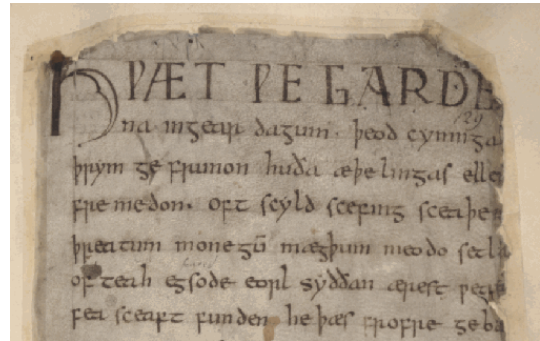 HǷÆT ǷE GARDE
na ingear dagum. þeod cyninga
þrym ge frunon huða æþelingas elle
fremedon. oft scyld scefing sceaþe
þreatum monegū mægþum meodo setla
of teah egsode eorl syððan ærest ƿear
fea sceaft funden he þæs frofre geba